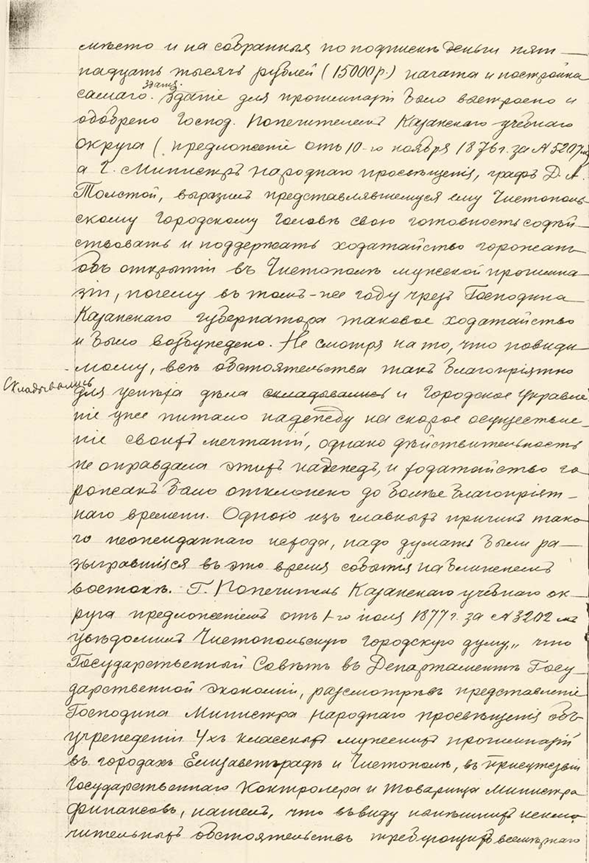 мѣсто и на собранныя по подпискѣ деньги пят-
надцать тысячъ рублей (15000 р.) начата и постройка
самаго зданія. Зданіе для прогимназіи было выстроено и
одобрено Господ. Попечителемъ Казанскаго учебнаго
округа (предложеніе отъ 10-го ноября 1876 г. за № 5207)
а Г. Министръ народнаго просвѣщенія, графъ Д. А.
Толстой, выразилъ представлявшемуся ему Чистополь-
скому Городскому Головѣ свою готовность содѣй-
ствовать и поддержать ходатайство горожанъ
объ открытіи въ Чистополѣ мужской прогимна-
зіи, почему въ томъ-же году чрезъ Господина
Казанскаго Губернатора таковое ходатайство
и было возбуждено. Не смотря на то, что повиди-
мому, всѣ обстоятельства такъ благопріятно
складывались
для успѣха дѣла складывались и Городское Управле-
ніе уже питало надежду на скорое осуществле-
ніе своихъ мечтаній, однако дѣйствительность
не оправдала этихъ надеждъ, и ходатайство го-
рожанъ было отклонено до болѣе благопріят-
наго времени. Одною изъ главныхъ причинъ тако-
го неожиданнаго исхода, надо думать были ра-
зыгравшіяся въ это время событія на Ближнемъ
востокѣ. Г. Попечитель Казанскаго учебнаго ок-
руга предложеніемъ отъ 1-го іюля 1877 г. за № 3202
увѣдомилъ Чистопольскую городскую думу, „что
Государственный Совѣтъ въ Департаментѣ Госу-
дарственной экономіи, разсмотрѣвъ представленіе
Господина Министра народнаго просвѣщенія объ
учрежденіи 4хъ классныхъ мужскихъ прогимназій
въ городахъ Елизаветградѣ и Чистополѣ, въ присутствіи
Государственнаго Контролера и товарища Министра
финансовъ, нашелъ, что въ виду нынѣшнихъ исклю-
чительныхъ обстоятельствъ требующихъ всемѣрнаго